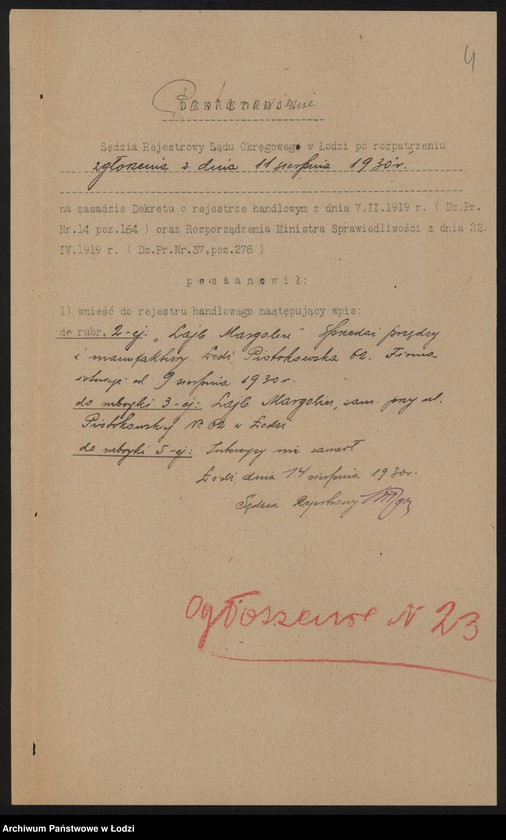 4
Postanowienie
Sędzia Rejestrowy Sądu Okręgowego w Łodzi po rozpatrzeniu
zgłoszenia z dnia 11 sierpnia 1930 r.
na zasadzie Dekretu o rejestrze handlowym z dnia 7.II.1919 r. ( Dz.Pr.
Nr.14 poz.164 ) oraz Rozporządzenia Ministra Sprawiedliwości z dnia 22.
IV.1919 r. ( Dz.Pr.Nr.37,poz.278 )
p o s t a n o w i ł :
1) wnieść do rejestru handlowego następujący wpis:
do rubr. 2-ej: „Lajb Margolin" Sprzedaż przędzy
i manufaktury Łódź Piotrkowska 62. Firma
istnieje od 9 sierpnia 1930 r.
do rubryki 3-ej: Lajb Margolin, zam. przy ul.
Piotrkowskiej № 62 w Łodzi
do rubryki 5-ej: Intercyzy nie zawarł
Łódź dnia 14 sierpnia 1930 r.
Sędzia Rejestrowy
Ogłoszenie N 23
Archiwum Państwowe w Łodzi